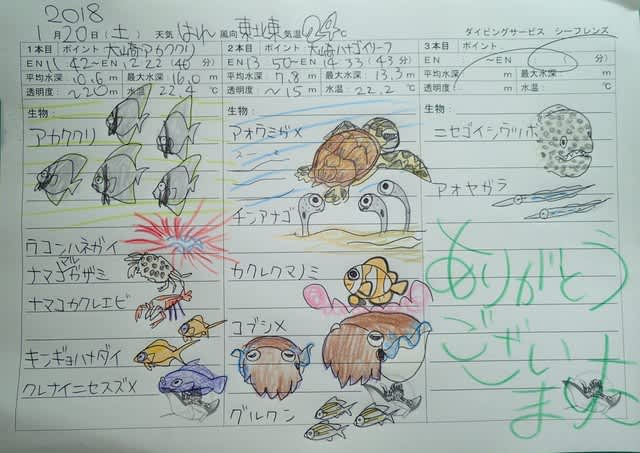 2018
1月20日(土) 天気 はれ 風向 東北東 気温 24℃ ダイビングサービス シーフレンズ
1本目 ポイント 大崎アカククリ
EN 11:42～EN 12:22 (40分)
平均水深: 10.6m 最大水深: 16.0m
透明度: ～20m 水温: 22.4℃
生物:
アカククリ
ウコンハネガイ
ナマコマルガザミ
ナマコカクレエビ
キンギョハナダイ
クレナイニセスズメ
2本目 ポイント: 大崎ハナゴイリーフ
EN 13:50～EN 14:33 (43分)
平均水深: 7.8m 最大水深: 13.3m
透明度: ～15m 水温: 22.2℃
生物:
アオウミガメ
チンアナゴ
カクレクマノミ
コブシメ
グルクン
3本目 ポイント
EN ～EN ( 分)
平均水深: m 最大水深: m
透明度: m 水温: ℃
生物:
ニセゴイシウツボ
アオヤガラ
ありがとう
ござい
ます